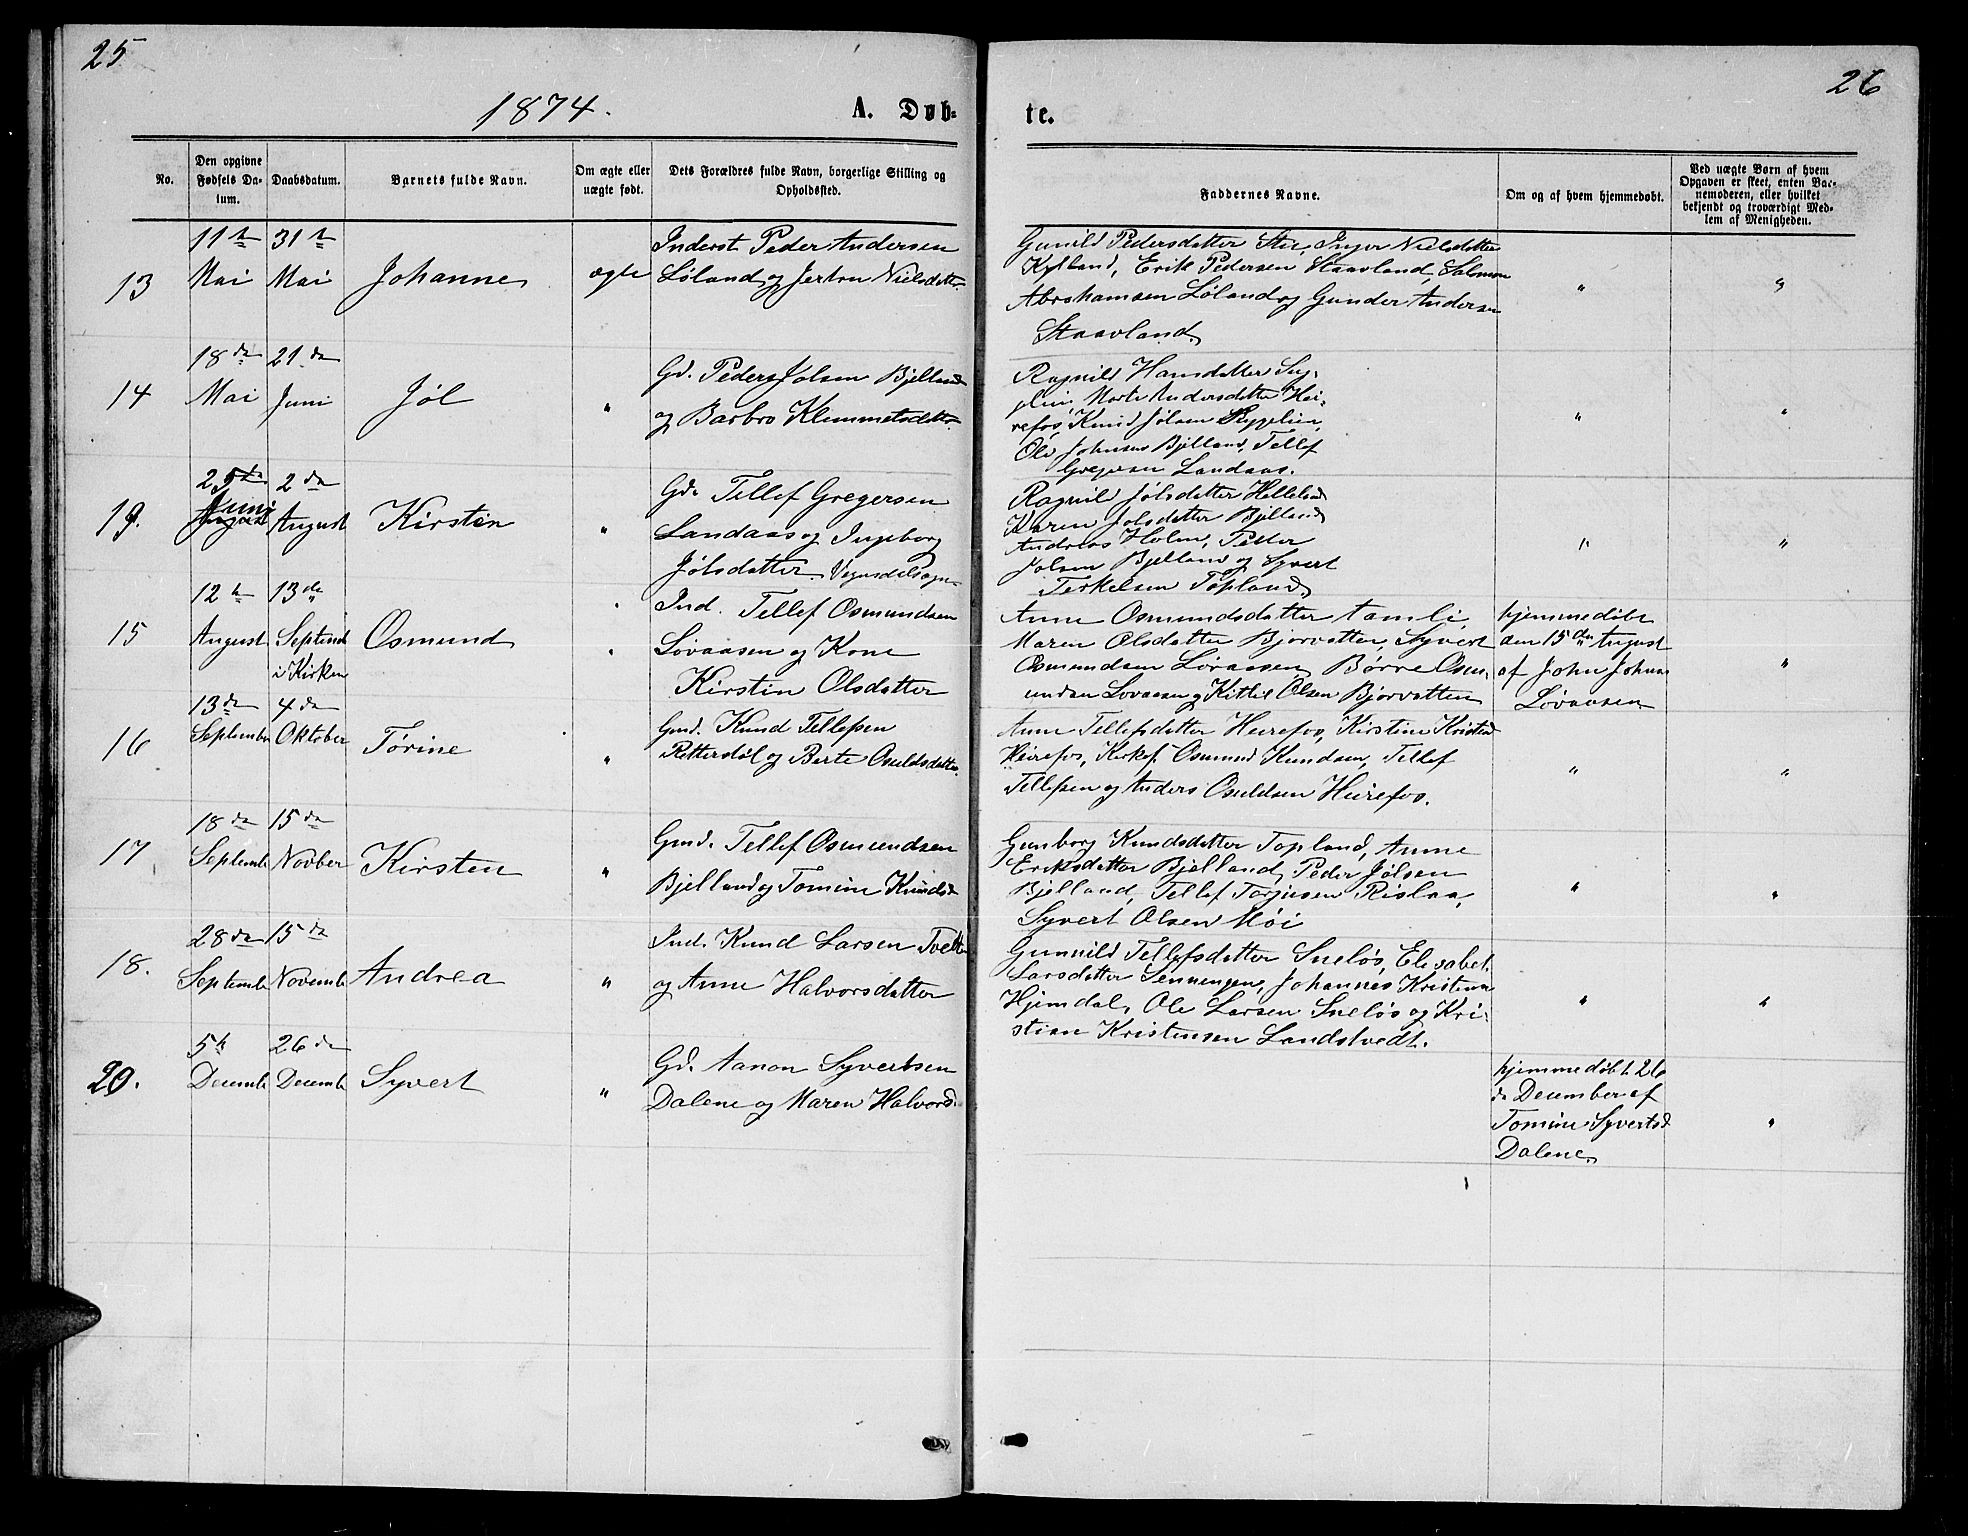 25
26
1874.
A. Døb-
te.
No.
Den opgivne Fødsels Da-
tum.
Daabsdatum.
Barnets fulde Navn.
Om ægte eller uægte født.
Dets Forældres fulde Navn, borgerlige Stilling og Opholdssted.
Faddernes Navne.
Om og af hvem hjemmedøbt.
Ved uægte Børn af hvem
Opgaven er skeet, enten Bar-
nemoderen, eller hvilket
bekjendt og troværdigt Med-
lem af Menigheden.
13
11te Mai
31te Mai
Johanne
ægte
Inderst Peder Andersen
Løland og Jertru Nielsdatter
Gunild Pedersdatter Stie, Inger Nielsdatter
Kylland, Erik Pedersen Staavland, Salomon
Abrahamsen Løland og Gunder Andersen
Staavland
" "
14
18de Mai
21de Juni
Jøl
"
Gd. Peder Jølsen Bjelland
og Barbro Klemmetsdatter
Ragnild Hansdatter
Marte Andersdatter Hei-
refos, Knud Jølsen
Ole Johnsen Bjelland, Tellef
Gregersen Landaas.
" "
19.
25de Juni
2den August
Kirsten
"
Gd. Tellef Gregersen
Landaas og Ingeborg
Jølsdatter
Ragnild Jølsdatter
Karen Jølsdatter Bjelland
Andreas Holm, Peder
Jølsen Bjelland og Syvert
Terkelsen Topland
" "
15
12te August
13de Septemb
i Kirken
Osmund
"
Ind. Tellef Osmundsen
Løvaasen og Kone
Kirstin Olsdatter
Anne Osmundsdatter Tamli,
Maren Olsdatter Bjorvatten, Syvert
Osmundsen Løvaasen, Børre Osm-
undsen Løvaasen og Kittil Olsen Bjorvatten
hjemmedøbt
den 15de August
af John Johns
Løvaasen
"
16
13de September
4de Oktober
Tørine
"
Gmd. Knud Tellefsen
Rettersdøl og Berte Osuldsdatter
Anne Tellefsdatter Heirefos, Kirstine Kristens
Heirefos, Kirkes. Osmund Knudsen, Tellef
Tellefsen og Anders Osuldsen Heirefos.
" "
17
18de Septemb
15de Novber
Kirsten
"
Gmd. Tellef Osmundsen
Bjelland og Tomine Knudsd
Gunborg Knudsdatter Topland, Anne
Eriksdatter Bjelland, Peder Jølsen
Bjelland, Tellef Torjusen Rislaa,
Syvert Olsen Møi
" "
18.
28de Septemb
15de Novemb
Andrea
"
Ind. Knud Larsen Tvedt
og Anne Halvorsdatter
Gunnild Tellefsdatter Sneløs, Elisabet
Larsdatter Senningen, Johannes Kristensen
Hjemdal, Ole Larsen Sneløs og Kri-
stian Kristensen Landstvedt.
" "
20.
5te Decemb
26de Decemb
Syvert
"
Gd. Aanon Syvertsen
Dalene og Maren Halvorsd.
hjemmedøbt 26
de December af
Tomine Syvertsd
Dalene
"